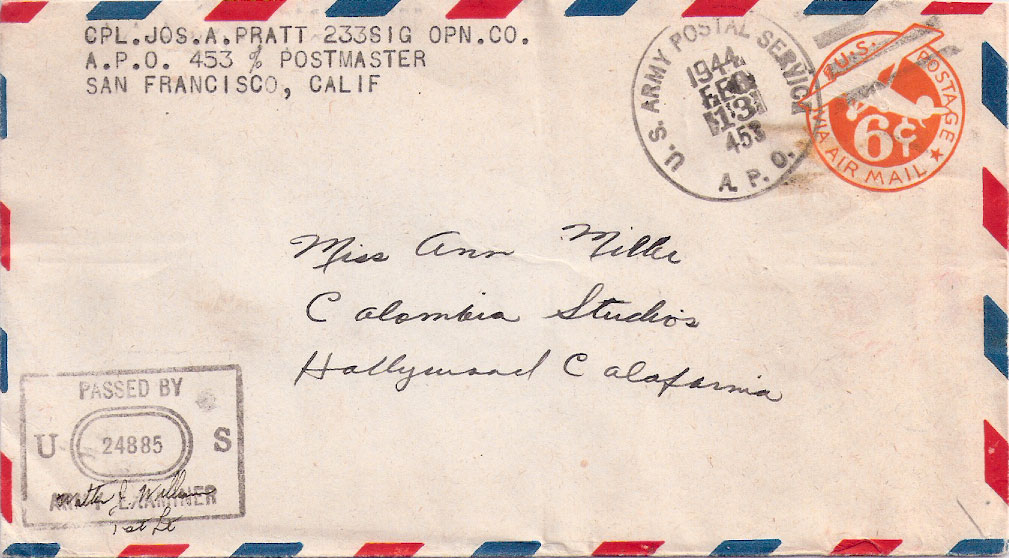 CPL.JOS.A.PRATT 233SIG OPN.CO.
A.P.O. 453 % POSTMASTER
SAN FRANCISCO, CALIF
U.S. ARMY POSTAL SERVICE
1944
FEB
13
453
A.P.O.
U.S. POSTAGE
6¢
VIA AIR MAIL
Miss Ann Miller
Colombia Studios
Hollywood Calafornia
PASSED BY
U 24885 S
ARMY EXAMINER
Walter J. Williams
1st Lt